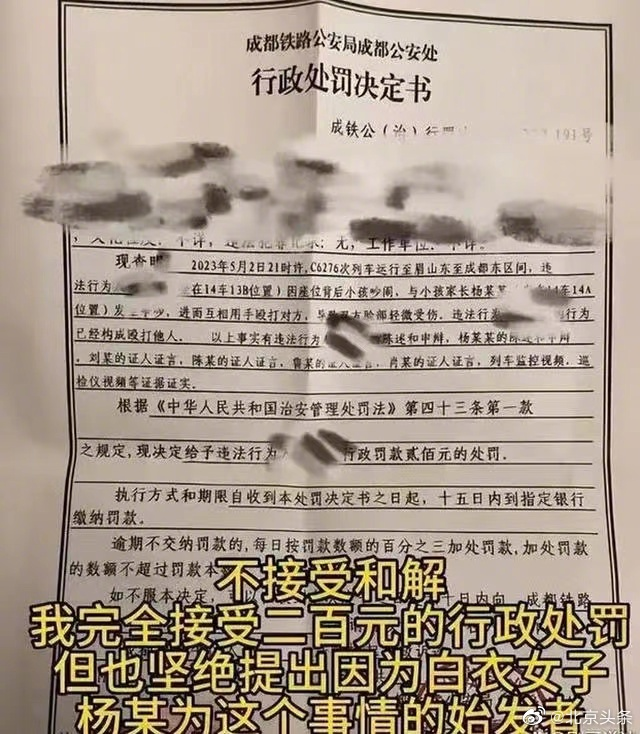 成都铁路公安局成都公安处
行政处罚决定书
成铁公(治)行罚 191号
不详,违法犯罪记录:无,工作单位:不详。
现查明 2023年5月2日21时许,C6276次列车运行至眉山东至成都东区间,违
法行为 在14车13B位置)因座位背后小孩吵闹,与小孩家长杨某某 14车14A
位置)发生争吵,进而互相用手殴打对方,导致双方脸部轻微受伤。违法行为 行为
已经构成殴打他人。 以上事实有违法行为 陈述和申辩,杨某某的陈述和申辩
,刘某的证人证言,陈某的证人证言,鲁某的证人证言,肖某的证人证言,列车监控视频,巡
检仪视频等证据证实.
根据《中华人民共和国治安管理处罚法》第四十三条第一款
之规定,现决定给予违法行为 行政罚款贰佰元的处罚.
执行方式和期限自收到本处罚决定书之日起,十五日内到指定银行
缴纳罚款。
逾期不交纳罚款的,每日按罚款数额的百分之三加处罚款,加处罚款
的数额不超过罚款本
如不服本决定,可以 十日内向 成都铁路
不接受和解
我完全接受二百元的行政处罚
但也坚绝提出因为白衣女子
杨某为这个事情的始发者
@北京头条